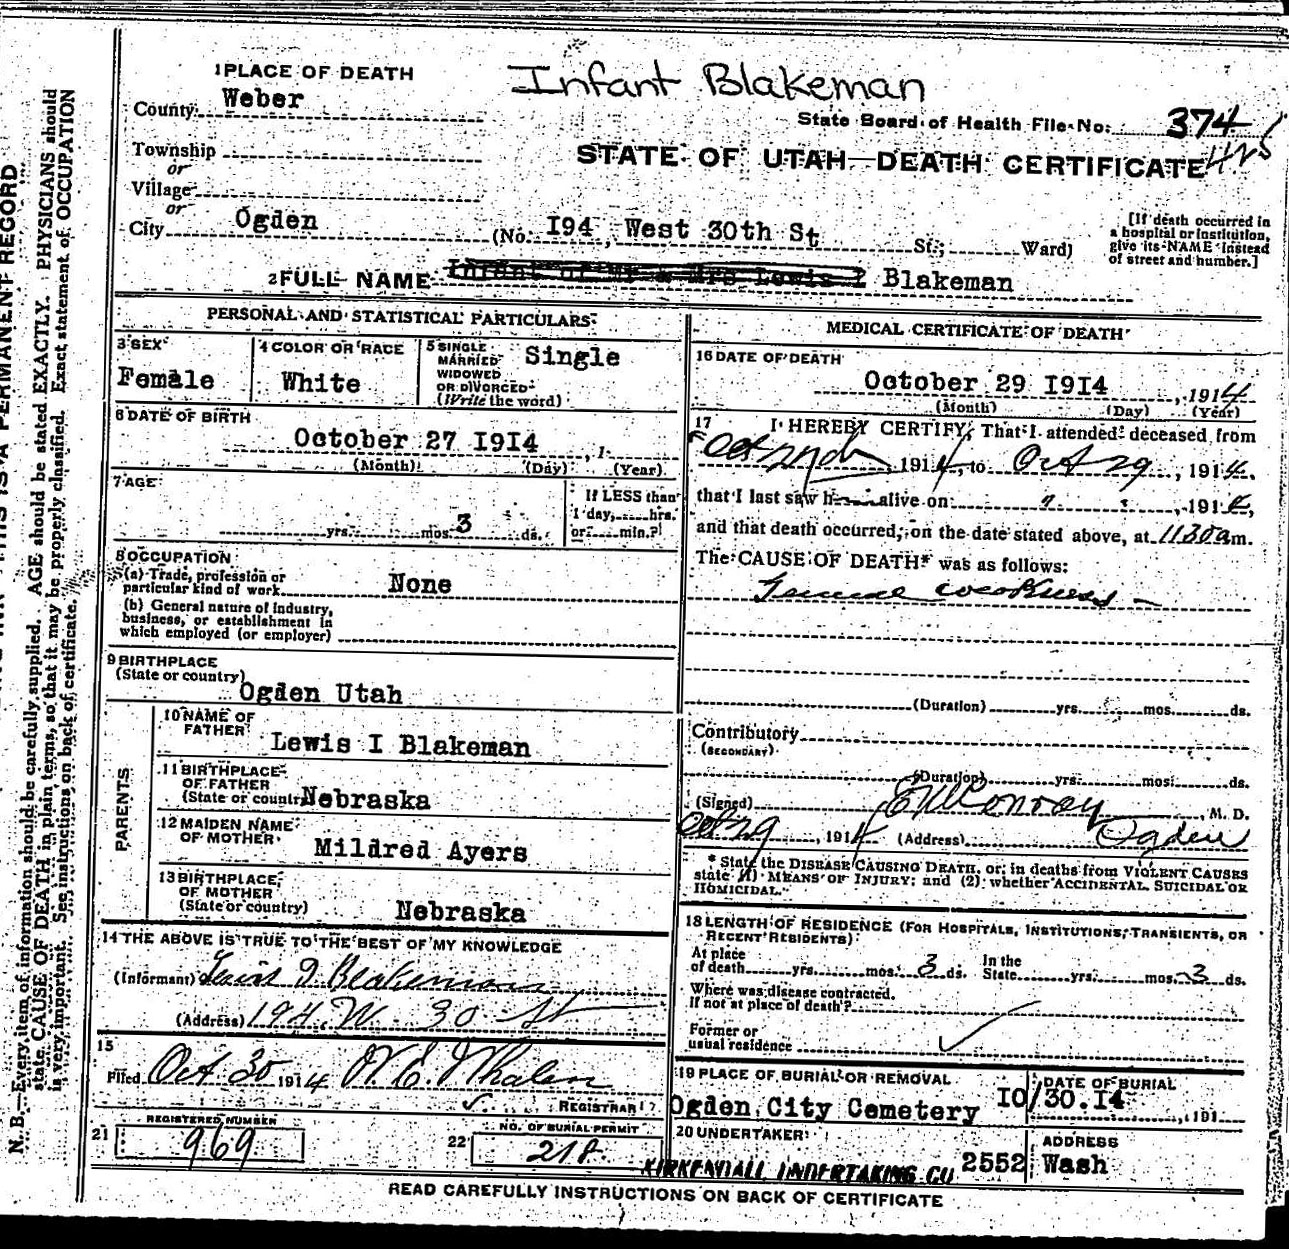 1 PLACE OF DEATH
Infant Blakeman
County Weber
State Board of Health File No. 374
Township
or
STATE OF UTAH—DEATH CERTIFICATE
Village
or
City Ogden (No. I94, West 30th St St.; Ward)
[If death occurred in
a hospital or institution,
give its NAME instead
of street and number.]
2 FULL NAME Infant of Mr & Mrs Lewis I Blakeman
PERSONAL AND STATISTICAL PARTICULARS
3 SEX
Female
4 COLOR OR RACE
White
5 SINGLE
MARRIED
WIDOWED
OR DIVORCED
(Write the word)
Single
6 DATE OF BIRTH
October 27 I9I4, 1
(Month) (Day) (Year)
7 AGE
yrs. mos. 3 ds.
If LESS than
1 day, hrs.
or min.?
8 OCCUPATION
(a) Trade, profession or
particular kind of work None
(b) General nature of industry,
business, or establishment in
which employed (or employer)
9 BIRTHPLACE
(State or country)
Ogden Utah
PARENTS
10 NAME OF
FATHER
Lewis I Blakeman
11 BIRTHPLACE
OF FATHER
(State or country) Nebraska
12 MAIDEN NAME
OF MOTHER
Mildred Ayers
13 BIRTHPLACE
OF MOTHER
(State or country) Nebraska
14 THE ABOVE IS TRUE TO THE BEST OF MY KNOWLEDGE
(Informant) Lewis I Blakeman
(Address) 194 W. 30 St
15
Filed Oct 30 1914 W. E. Whalen
REGISTRAR
21 REGISTERED NUMBER
969
22 NO. OF BURIAL PERMIT
218
MEDICAL CERTIFICATE OF DEATH
16 DATE OF DEATH
October 29 I9I4, 1914
(Month) (Day) (Year)
17 I HEREBY CERTIFY, That I attended deceased from
Oct 27th, 1914, to Oct 29, 1914.
that I last saw h alive on " ", 1914,
and that death occurred, on the date stated above, at 1130 am.
The CAUSE OF DEATH* was as follows:
weakness
(Duration) yrs. mos. ds.
Contributory
(SECONDARY)
(Duration) yrs. mos. ds.
(Signed) Conroy, M. D.
Oct 29, 1914 (Address) Ogden
* State the DISEASE CAUSING DEATH, or, in deaths from VIOLENT CAUSES
state (1) MEANS OF INJURY; and (2) whether ACCIDENTAL, SUICIDAL OR
HOMICIDAL.
18 LENGTH OF RESIDENCE (FOR HOSPITALS, INSTITUTIONS, TRANSIENTS, OR
RECENT RESIDENTS)
At place
of death yrs. mos. 3 ds.
In the
State yrs. mos. 3 ds.
Where was disease contracted,
If not at place of death?
Former or
usual residence
19 PLACE OF BURIAL OR REMOVAL
Ogden City Cemetery
DATE OF BURIAL
I0/30.I4, 191
20 UNDERTAKER
KIRKENDALL UNDERTAKING CO
ADDRESS
2552 Wash
READ CAREFULLY INSTRUCTIONS ON BACK OF CERTIFICATE
THIS IS A PERMANENT RECORD
N. B.—Every item of information should be carefully supplied. AGE should be stated EXACTLY. PHYSICIANS should
state CAUSE OF DEATH in plain terms, so that it may be properly classified. Exact statement of OCCUPATION
is very important. See instructions on back of certificate.